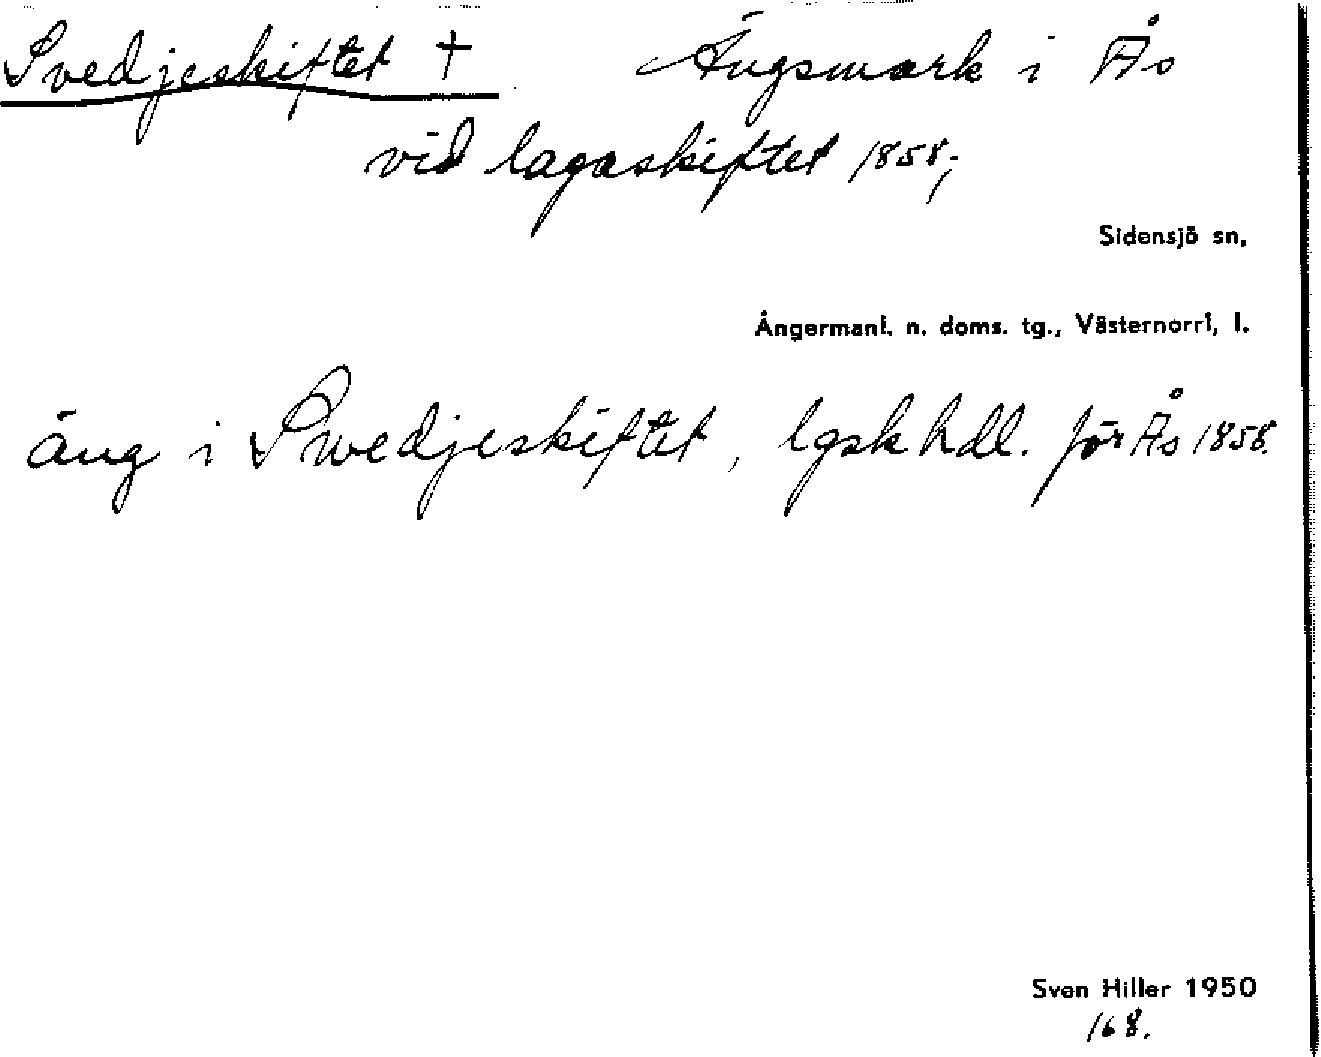 Svedjeskiftet † Ängsmark i Ås
vid lagaskiftet 1858;
Sidensjö sn,
Ångermanl. n. doms. tg., Västernorrl, l.
äng i Swedjeskiftet, lgsk hdl. för Ås 1858.
Sven Hiller 1950
168.